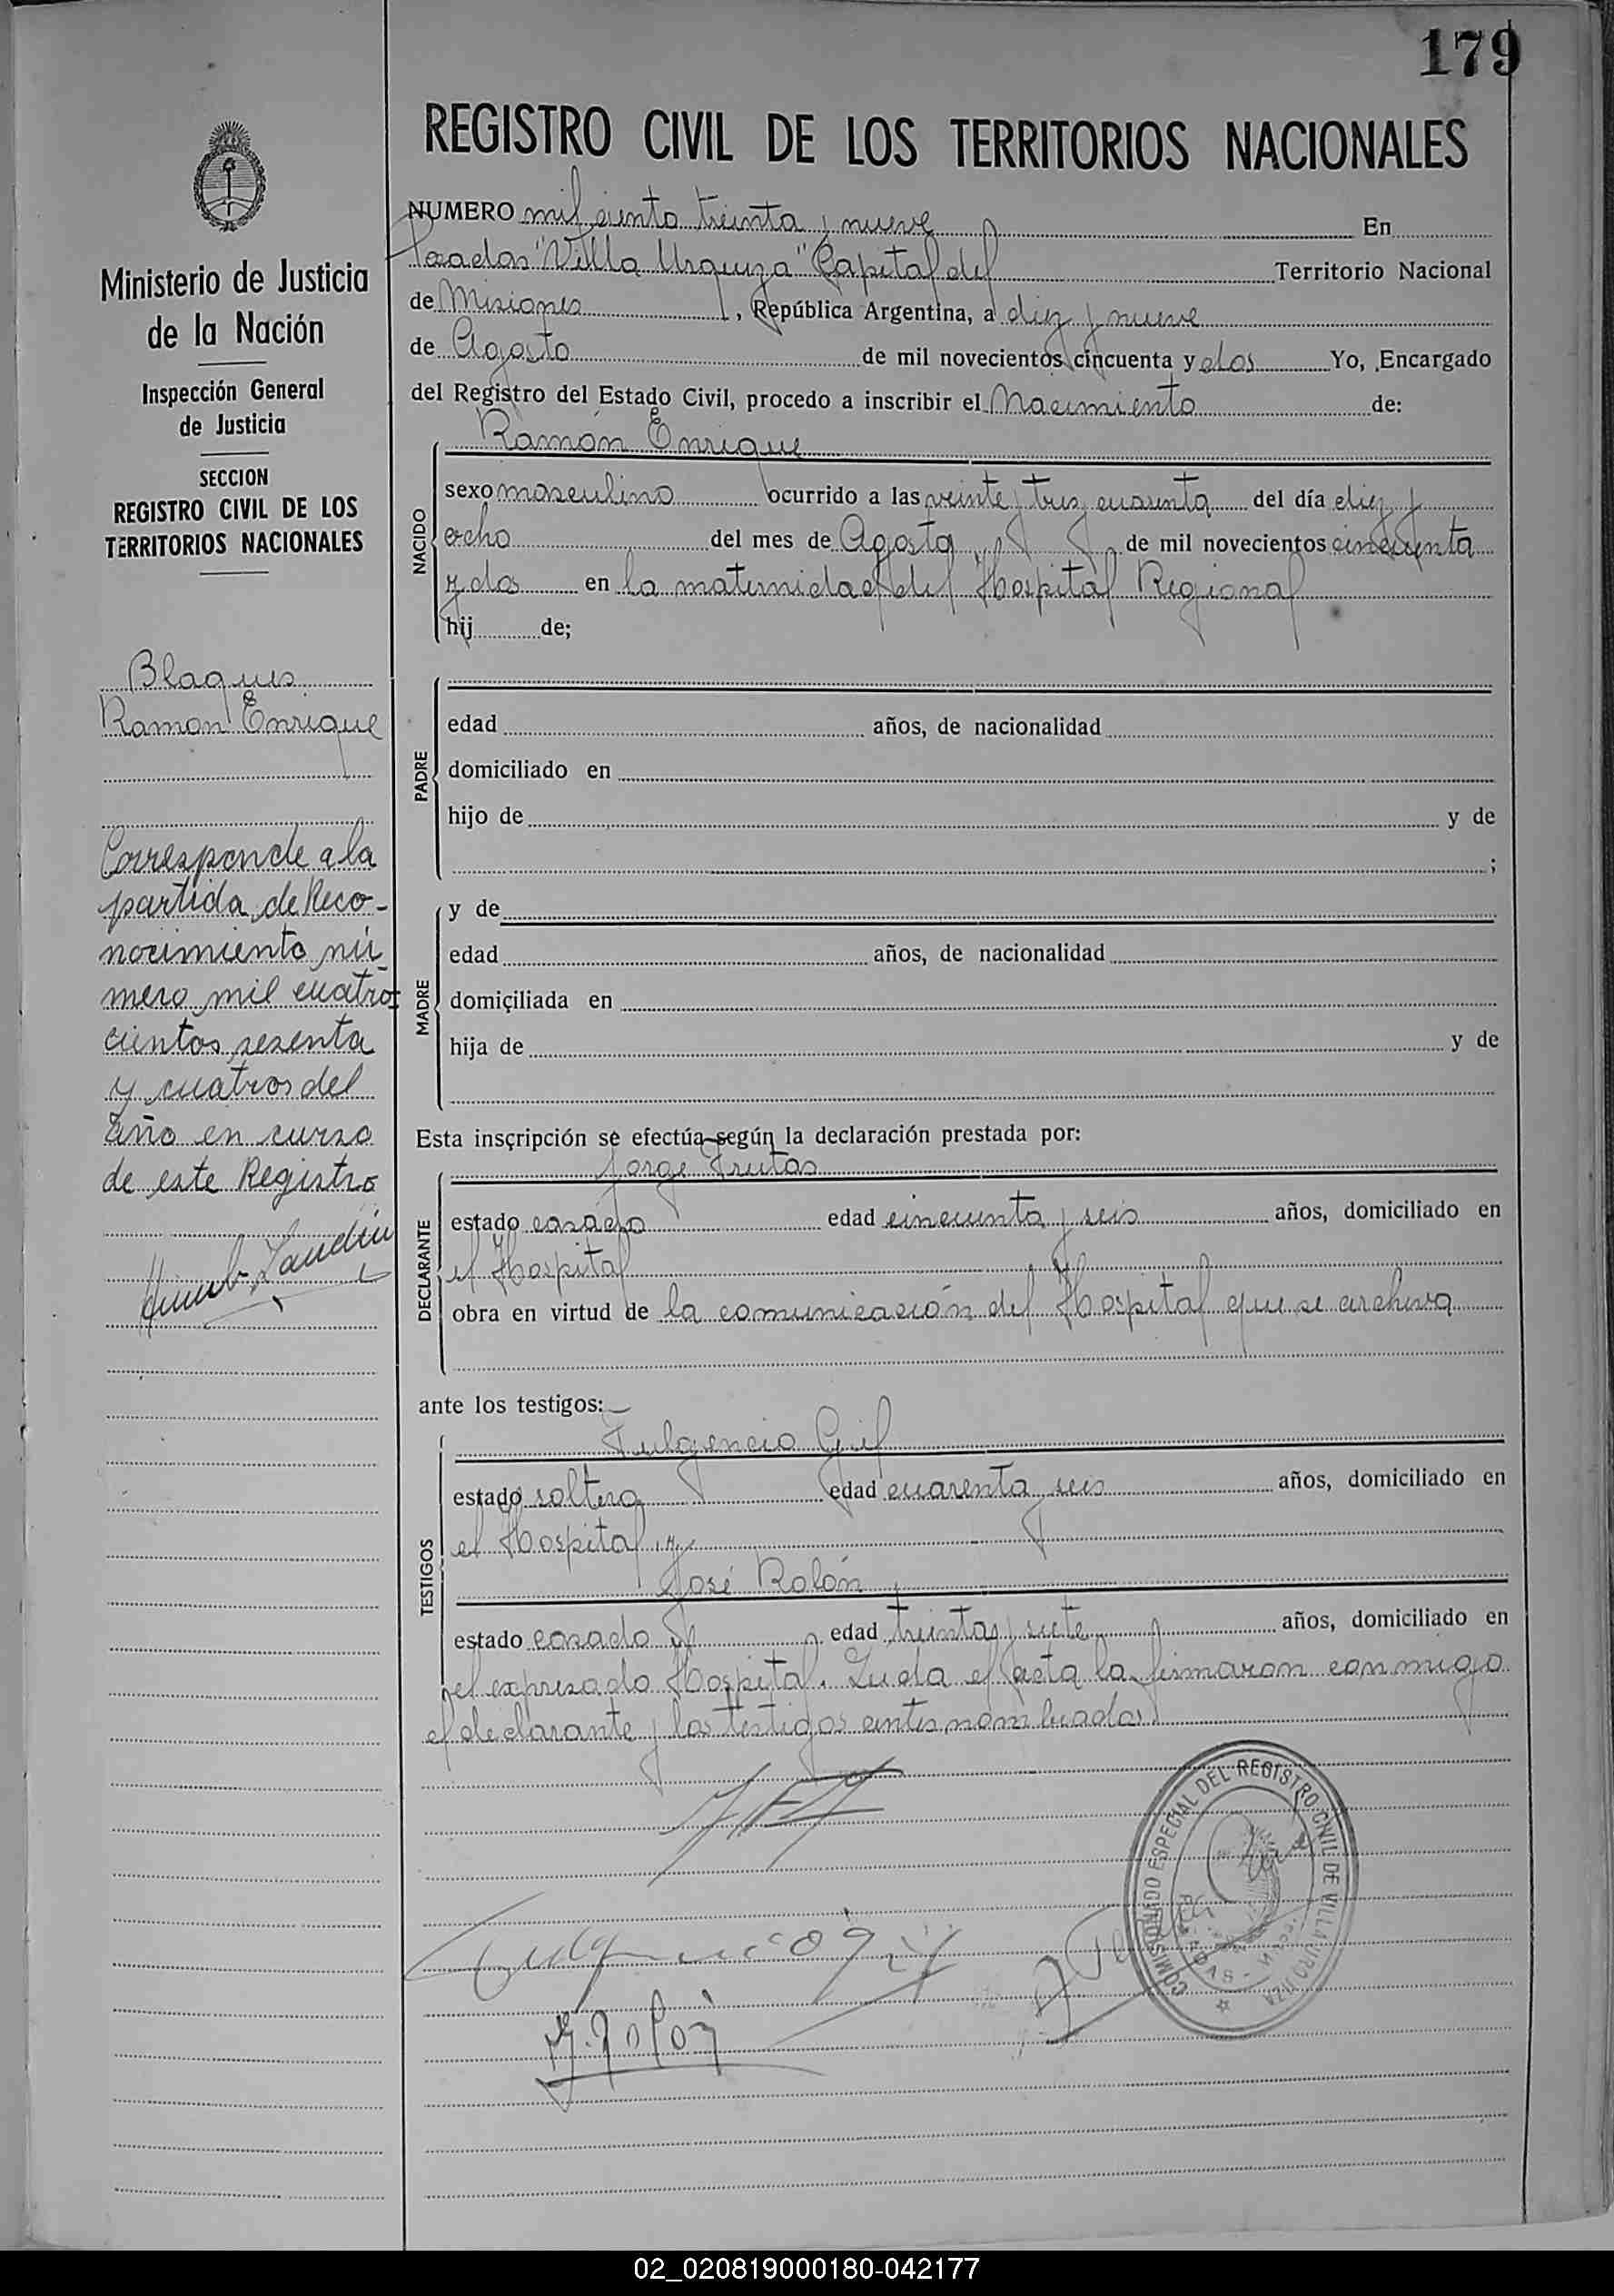 179
REGISTRO CIVIL DE LOS TERRITORIOS NACIONALES
Ministerio de Justicia
de la Nación
Inspección General
de Justicia
SECCION
REGISTRO CIVIL DE LOS
TERRITORIOS NACIONALES
Blaques
Ramon Enrique
Corresponde a la
partida de Reco-
nocimiento nú-
mero mil cuatro-
cientos sesenta
y cuatros del
año en curso
de este Registro
NUMERO mil ciento treinta y nueve En
Posadas "Villa Urquiza" Capital del Territorio Nacional
de Misiones, República Argentina, a diez y nueve
de Agosto de mil novecientos cincuenta y dos Yo, Encargado
del Registro del Estado Civil, procedo a inscribir el Nacimiento de:
Ramón Enrique
NACIDO
sexo masculino ocurrido a las veinte y tres cuarenta del día diez y
ocho del mes de Agosto de mil novecientos cincuenta
y dos en la maternidad del Hospital Regional
hij de;
PADRE
edad años, de nacionalidad
domiciliado en
hijo de y de
;
MADRE
y de
edad años, de nacionalidad
domiciliada en
hija de y de
Esta inscripción se efectúa según la declaración prestada por:
Jorge Frutos
DECLARANTE
estado casado edad cincuenta y seis años, domiciliado en
el Hospital
obra en virtud de la comunicación del Hospital que se archiva
ante los testigos:
Fulgencio Gil
TESTIGOS
estado soltero edad cuarenta y seis años, domiciliado en
el Hospital y
José Rolón
estado casado edad treinta y siete años, domiciliado en
el expresado Hospital. Leida el acta la firmaron conmigo
el declarante y los testigos antes nombrados
Fulgencio Gil
J. Rolón
COMISIONADO ESPECIAL DEL REGISTRO CIVIL DE VILLA URQUIZA
02_020819000180-042177